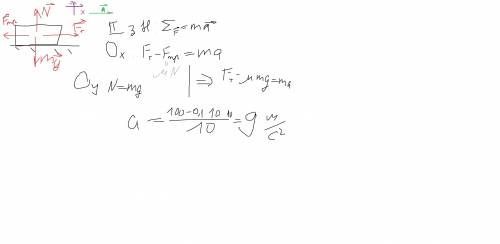 N⃗
y
x
a⃗
Fтр
Fт
mg
II з Н ΣF=ma⃗
Ox Fт-Fтр=ma
μN
Oy N=mg ⇒ Fт-μmg=ma
a = (100-0,1·10·10)/10 = 9 м/с²